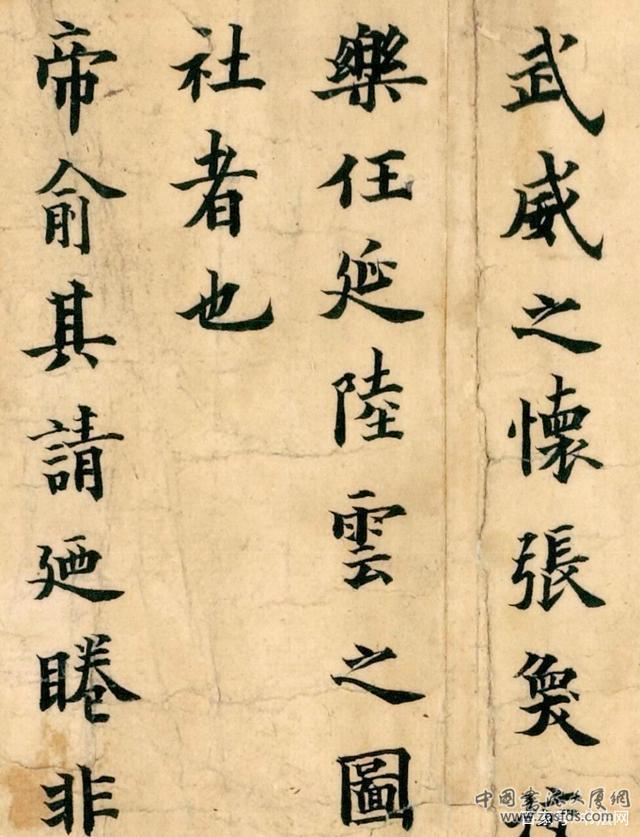 武威之懷張奐
樂任延陸雲之圖
社者也
帝俞其請廼睠非
中国书法大厦网
www.zgsfds.com